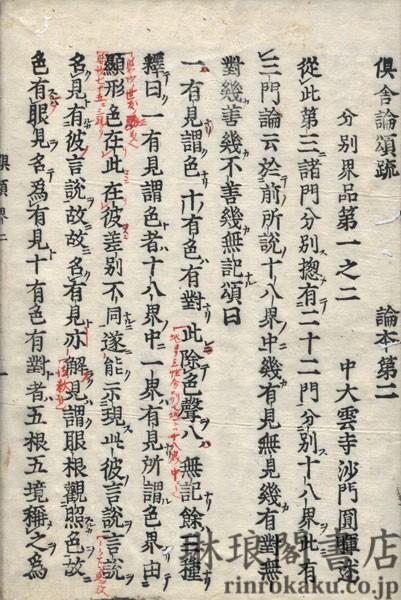 俱舍論頌疏　論本第二
分別界品第一之二　中大雲寺沙門圓暉述
從此第三諸門分別揔有二十二門分別十八界此有
三門論云於前所說十八界中幾有見無見幾有對無
對幾善幾不善幾無記頌曰
一有見謂色　十有色有對　此除色聲八　無記餘三種
釋曰一有見謂色者十八界中一界有見所謂色界由
顯形色在此在彼差別不同遂能示現此彼言說言說
名見有彼言說故故名有見亦解見謂眼根觀照色故
色有眼見名爲有見十有色有對者五根五境稱之爲
俱頌界二
一
琳琅閣書店
rinrokaku.co.jp